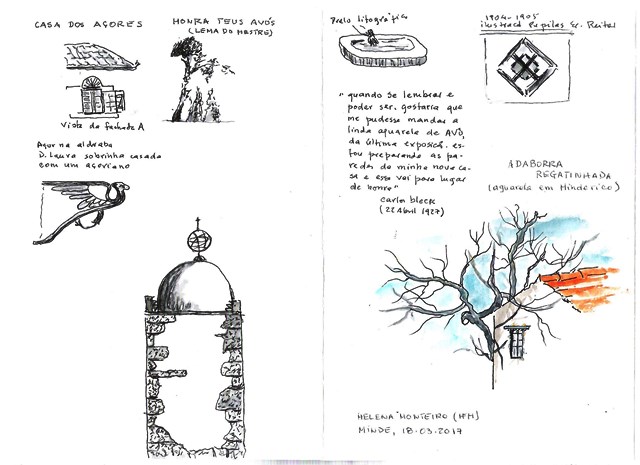 CASA DOS AÇORES
HONRA TEUS AVÓS
(LEMA DO MESTRE)
Vista da fachada A
Açor na aldraba
D. Laura sobrinha casada
com um açoriano
litográfica
1904-1905
"quando se lembrar e
poder ser, gostaria que
me pudesse mandar a
linda aguarela de AVÓ,
da última exposição. es-
tou preparando as pa-
redes da minha nova ca-
sa e essa vai para lugar
de honra"
Carlos bleck
(22 Abril 1927)
ADABORRA
REGATINHADA
(aguarela em Minderico)
HELENA MONTEIRO (HM)
MINDE, 18.03.2017